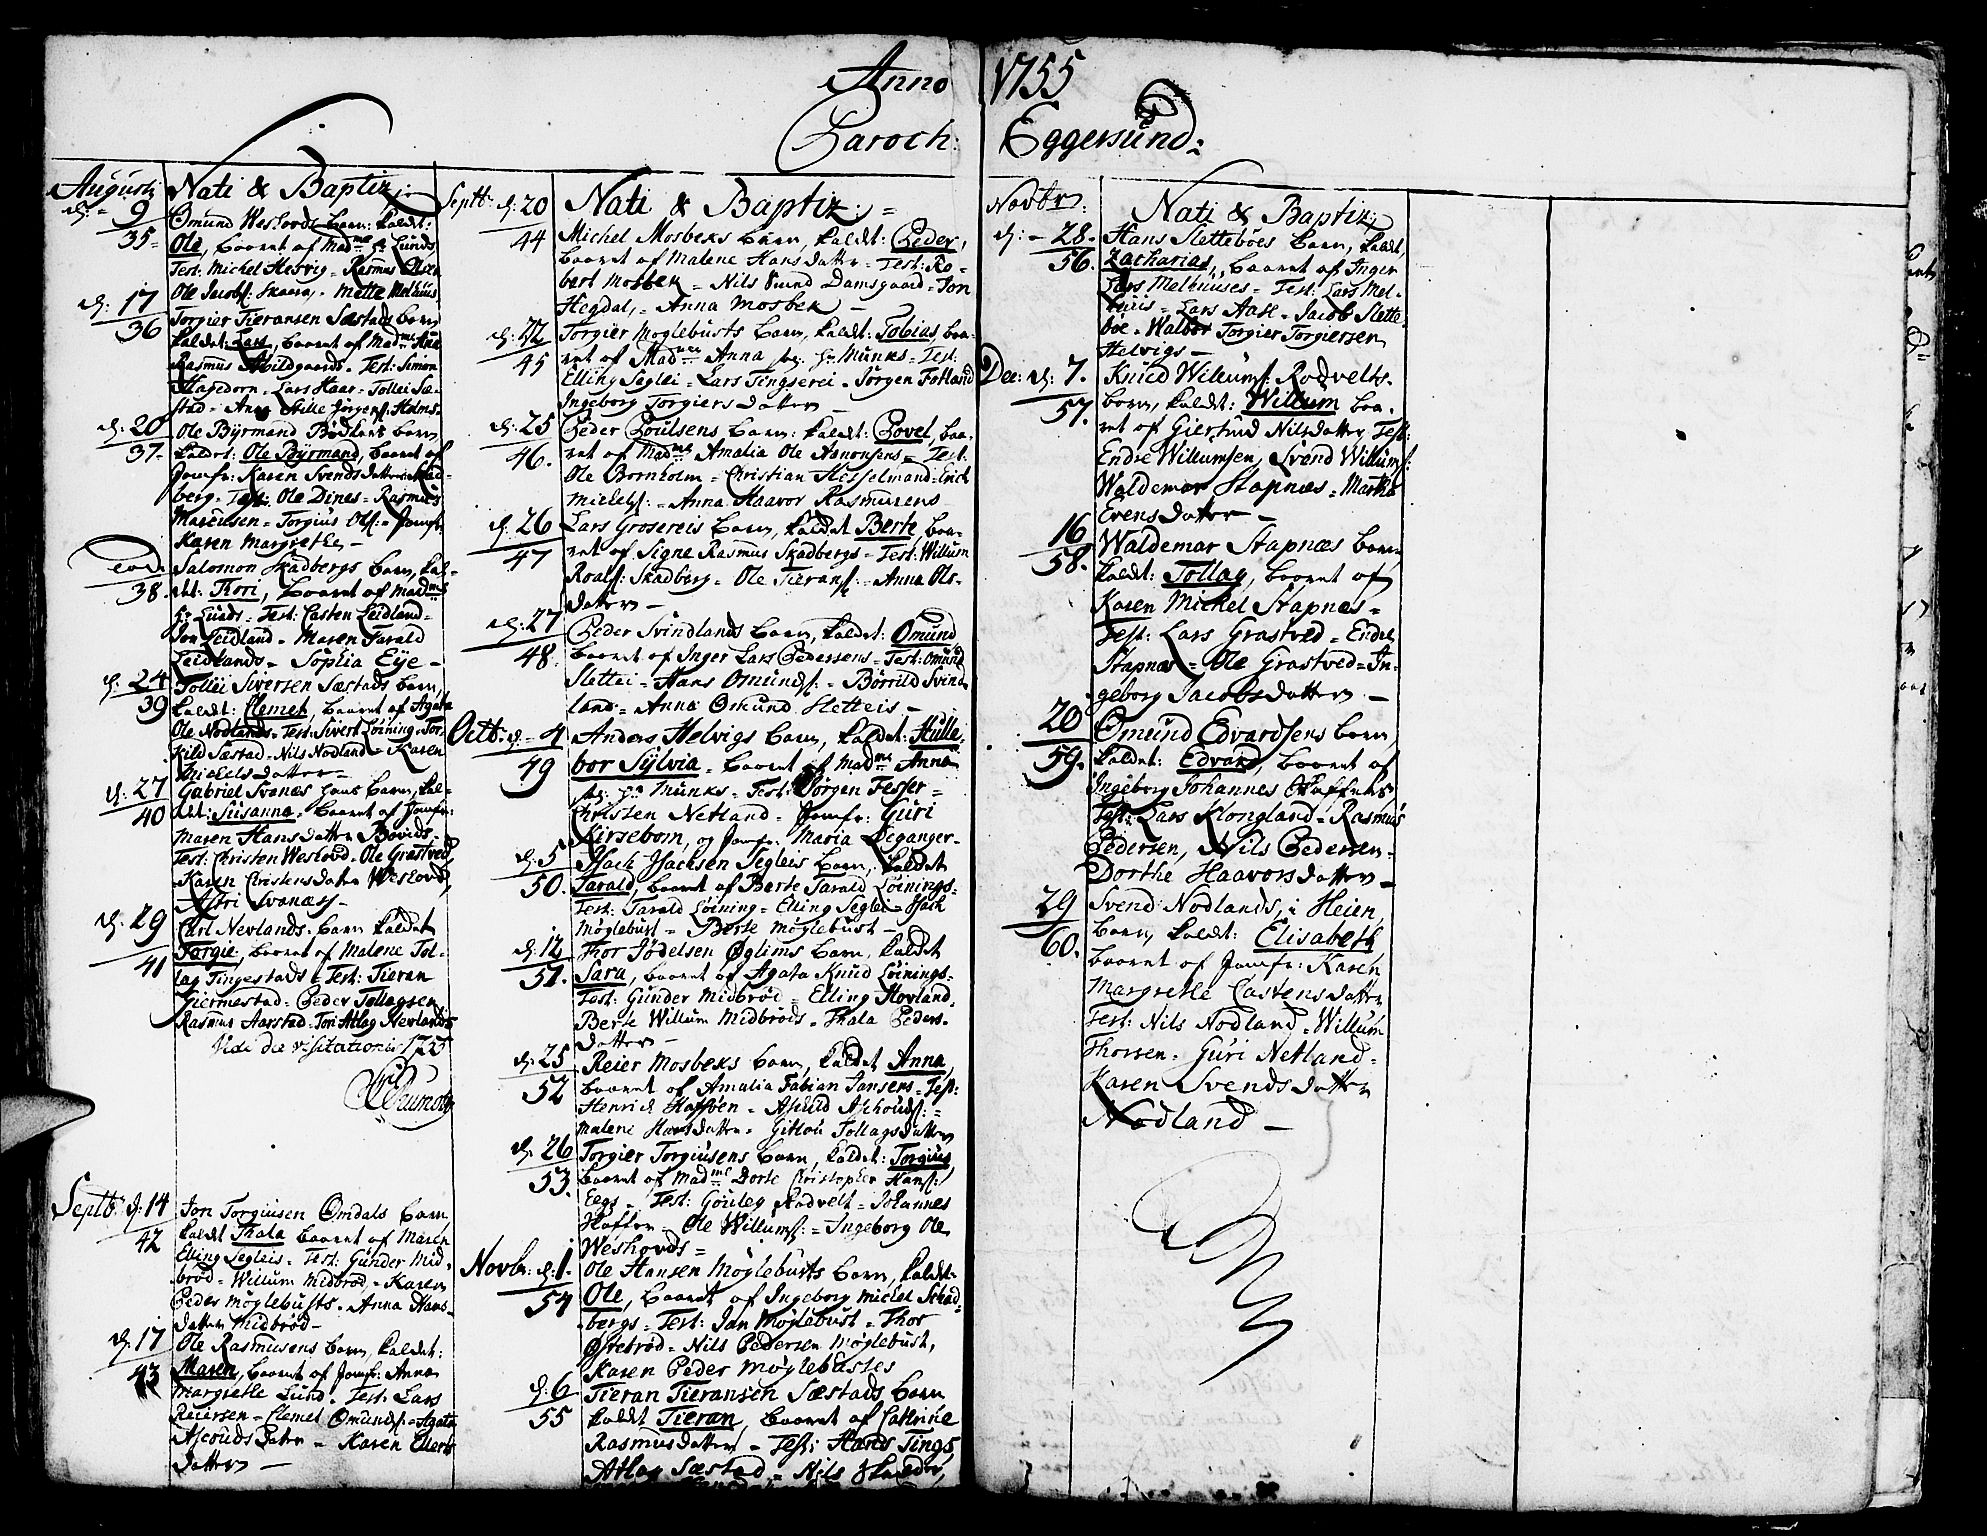 Anno 1755
Paroch: Eggersund:
Augusti Nati & Baptiz:
d: 9 Omund Weshovds barn: kaldt:
35 Ole, baaret af Madme Hr Lunds
Test: Michel Helvig = Rasmus
Ole Jacobs: Skaara, Mette Melhuus
d: 17 Torgier Tieransen Sæstads barn
36 kaldet: Lars, baaret af Madme Ane
Rasmus Abildgaards. Test: Simon
Hagedorn. Lars Haar. Tollei Sæ-
stad. Anna Sille Jørgens: Holms.
d: 20 Ole Byrmand Bødkers barn
37. kaldet: Ole Byrmand, baaret af
Jomfr: Karen Svends datter Skad-
berg. Test: Ole Dines. Rasmus
Marcusen. Torgius Ols: Jomfr:
Karen Margrethe
Eod. Salomon Skadbergs barn, kal-
38. det: Thori, baaret af Madme
Hr Lunds. Test: Casten Leidland.
Jon Leidland. Maren Tarald
Leidlands. Sophia Eye
d: 24 Tollei Siversen Sæstads barn,
39 kaldt: Clemet, baaret af Agata
Ole Nodlands. Test: Sivert Løining. Tor-
kild Sæstad. Nils Nodland. Karen
Michelsdatter
d: 27 Gabriel Svanæs hans barn, kal-
40 det: Susanna. baaret af Jomfr:
Maren Hansdatter Bovids.
Test: Christen Weshovd. Ole Grastved
Karen Christensdatter Weshovd,
Astri Svanæs
d: 29 Carl Nevlands barn kaldet
41 Torgie, baaret af Malene Tol-
lag Tingestads. Test: Tieran
Giermestad. Peder Tollagsen
Rasmus Aarstad. Tori Atlag Nevlands
Vidi die visitationis 1755
Septbr d: 14 Jon Torgiusen Omdals barn
42 kaldt Thala baaret af Maren
Elling Segleis. Test: Gunder Mid-
brød. Willum Midbrød. Karen
Peder Møglebusts. Anna Hans-
datter Midbrød
d: 17 Ole Rasmusens barn, kaldet:
43 Maren, baaret af Jomfr: Anna
Margrethe Lund. Test: Lars
Reiersen. Clemet Omunds: Agata
Ascouds datter. Karen Ellerts
datter
Septbr d: 20 Nati & Baptiz:
44 Michel Mosbeks barn, kaldet: Peder,
baaret af Malene Hans datter. Test: Ro-
bert Mosbek. Nils Sund Damsgaard. Jon
Hegdal, Anna Mosbek
d: 22 Torgier Moglebusts barn, kaldt: Tobias, baa-
45 ret af Madme Anna Hr Munks. Test:
Elling Seglei. Lars Tingserei. Jørgen Fotland
Ingeborg Torgiers datter
d: 25 Peder Poulsens barn: kaldet: Povel, baa-
46. ret af Madme Amalia Ole Aanonsens. Test.
Ole Bornholm. Christian Hesselmand. Erich
Michels: Anna Haavor Rasmusens
d: 26 Lars Grosereis barn, kaldet Berte, baa-
47 ret af Signe Rasmus Skadbergs. Test: Willum
Roalfs: Skadberg. Ole Tierans: Anna Ols-
datter
d: 27 Peder Svindlands barn, kaldet: Omund
48. baaret af Inger Lars Pedersens. Test: Omund
Slettei. Hans Omunds: Børrild Svind-
land. Anna Omund Sletteis
Octb: d. 4 Anders Helvigs barn, kaldet: Hulle-
49 bor Sylvia. baaret af Madme Anna
Hr Munks. Test: Jørgen Fesser
Christen Netland. Jomfr: Guri
Kirsebom, og Jomfr: Maria Deganger
d: 5 Jsack Jsacksen Segleis barn, kaldet
50. Tarald, baaret af Berte Tarald Løinings.
Test: Tarald Løining. Elling Seglei. Jsack
Møglebust. Berte Møglebust
d: 12 Thor Jødelsen Øglims barn, kaldet
51. Sara, baaret af Agata Knud Løinings.
Test: Gunder Midbrød. Elling Hovland.
Berte Willum Midbrøds. Thala Peders-
datter
d: 25 Reier Mosbeks barn, kaldet Anna
52 baaret af Amalia Fabian Jansens. Test:
Henrich Hafsøen. Aschild Aschouds:
Malene Hansdatter. Gitlou Tollagsdatter
d: 26 Torgier Torgiusens barn, kaldet: Torgius
53. baaret af Madme Dorte Christopher Hans:
Eegs. Test: Gouleg Rodvelt. Johannes
Hafter. Ole Willums: Ingeborg Ole
Weshovds
Novbr: d: 1. Ole Hansen Møglebusts barn, kaldet:
54 Ole, baaret af Ingeborg Michel Skad-
bergs. Test: Jan Møglebust. Thor
Østebrød. Nils Pedersen Møglebust,
Karen Peder Møglebustes
d: 6 Tieran Tieransen Sæstads barn
55 kaldet Tieran, baaret af Cathrine
Rasmusdatter. Test: Hans Tings
Atlag Sæstad. Nils
Novbr: Nati & Baptiz:
d: 28. Hans Slettebøes barn, kaldt,
56. Zacharias, baaret af Inger
Lars Melhuuses. Test: Lars Mel-
huus. Lars Aase. Jacob Slette-
bøe. Walbor Torgier Torgiersen
Helvigs
Dec: d: 7. Knud Willums: Rodvelts.
57. barn, kaldt: Willum baa-
ret af Giertrud Nilsdatter, Test:
Endre Willumsen, Svend Willums:
Waldemar Stapnæs. Martha
Evensdatter
16 Waldemar Stapnæs barn
58. kaldt: Tollag, baaret af
Karen Michel Stapnæs.
Test: Lars Grastved. Endre
Stapnæs. Ole Grastved. In-
geborg Jacobsdatter
20 Omund Edvardsens barn,
59. kaldet: Edvard, baaret af
Ingeborg Johannes
Test: Lars Klongland. Rasmus
Pedersen, Nils Pedersen.
Dorthe Haavorsdatter
29 Svend Nodlands, i Heien,
60. barn, kaldt: Elisabeth
baaret af Jomfr: Karen
Margrethe Castensdatter
Test: Nils Nodland. Willum
Thorsen. Guri Netland.
Karen Svendsdatter
Nodland